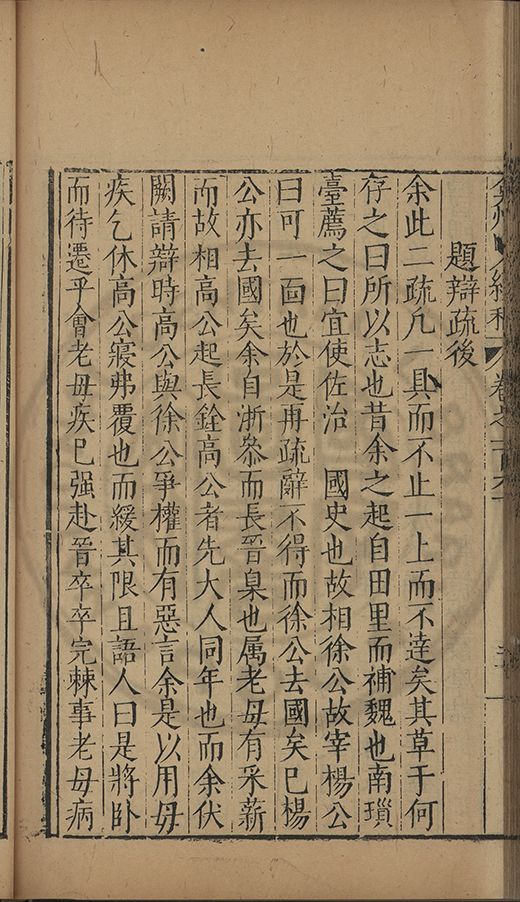 題辯疏後
余此二疏凢一具而不止一上而不達矣其草于何
存之曰所以志也昔余之起自田里而補魏也南瑣
臺薦之曰宜使佐治　國史也故相徐公故宰楊公
曰可一面也於是再疏辭不得而徐公去國矣已楊
公亦去國矣余自浙叅而長晉臬也属老母有采薪
而故相高公起長銓高公者先大人同年也而余伏
闕請辯時高公與徐公爭權而有惡言余是以用母
疾乞休高公寢弗覆也而緩其限且語人曰是將卧
而待遷乎會老母疾已强赴晉卒卒完棘事老母病